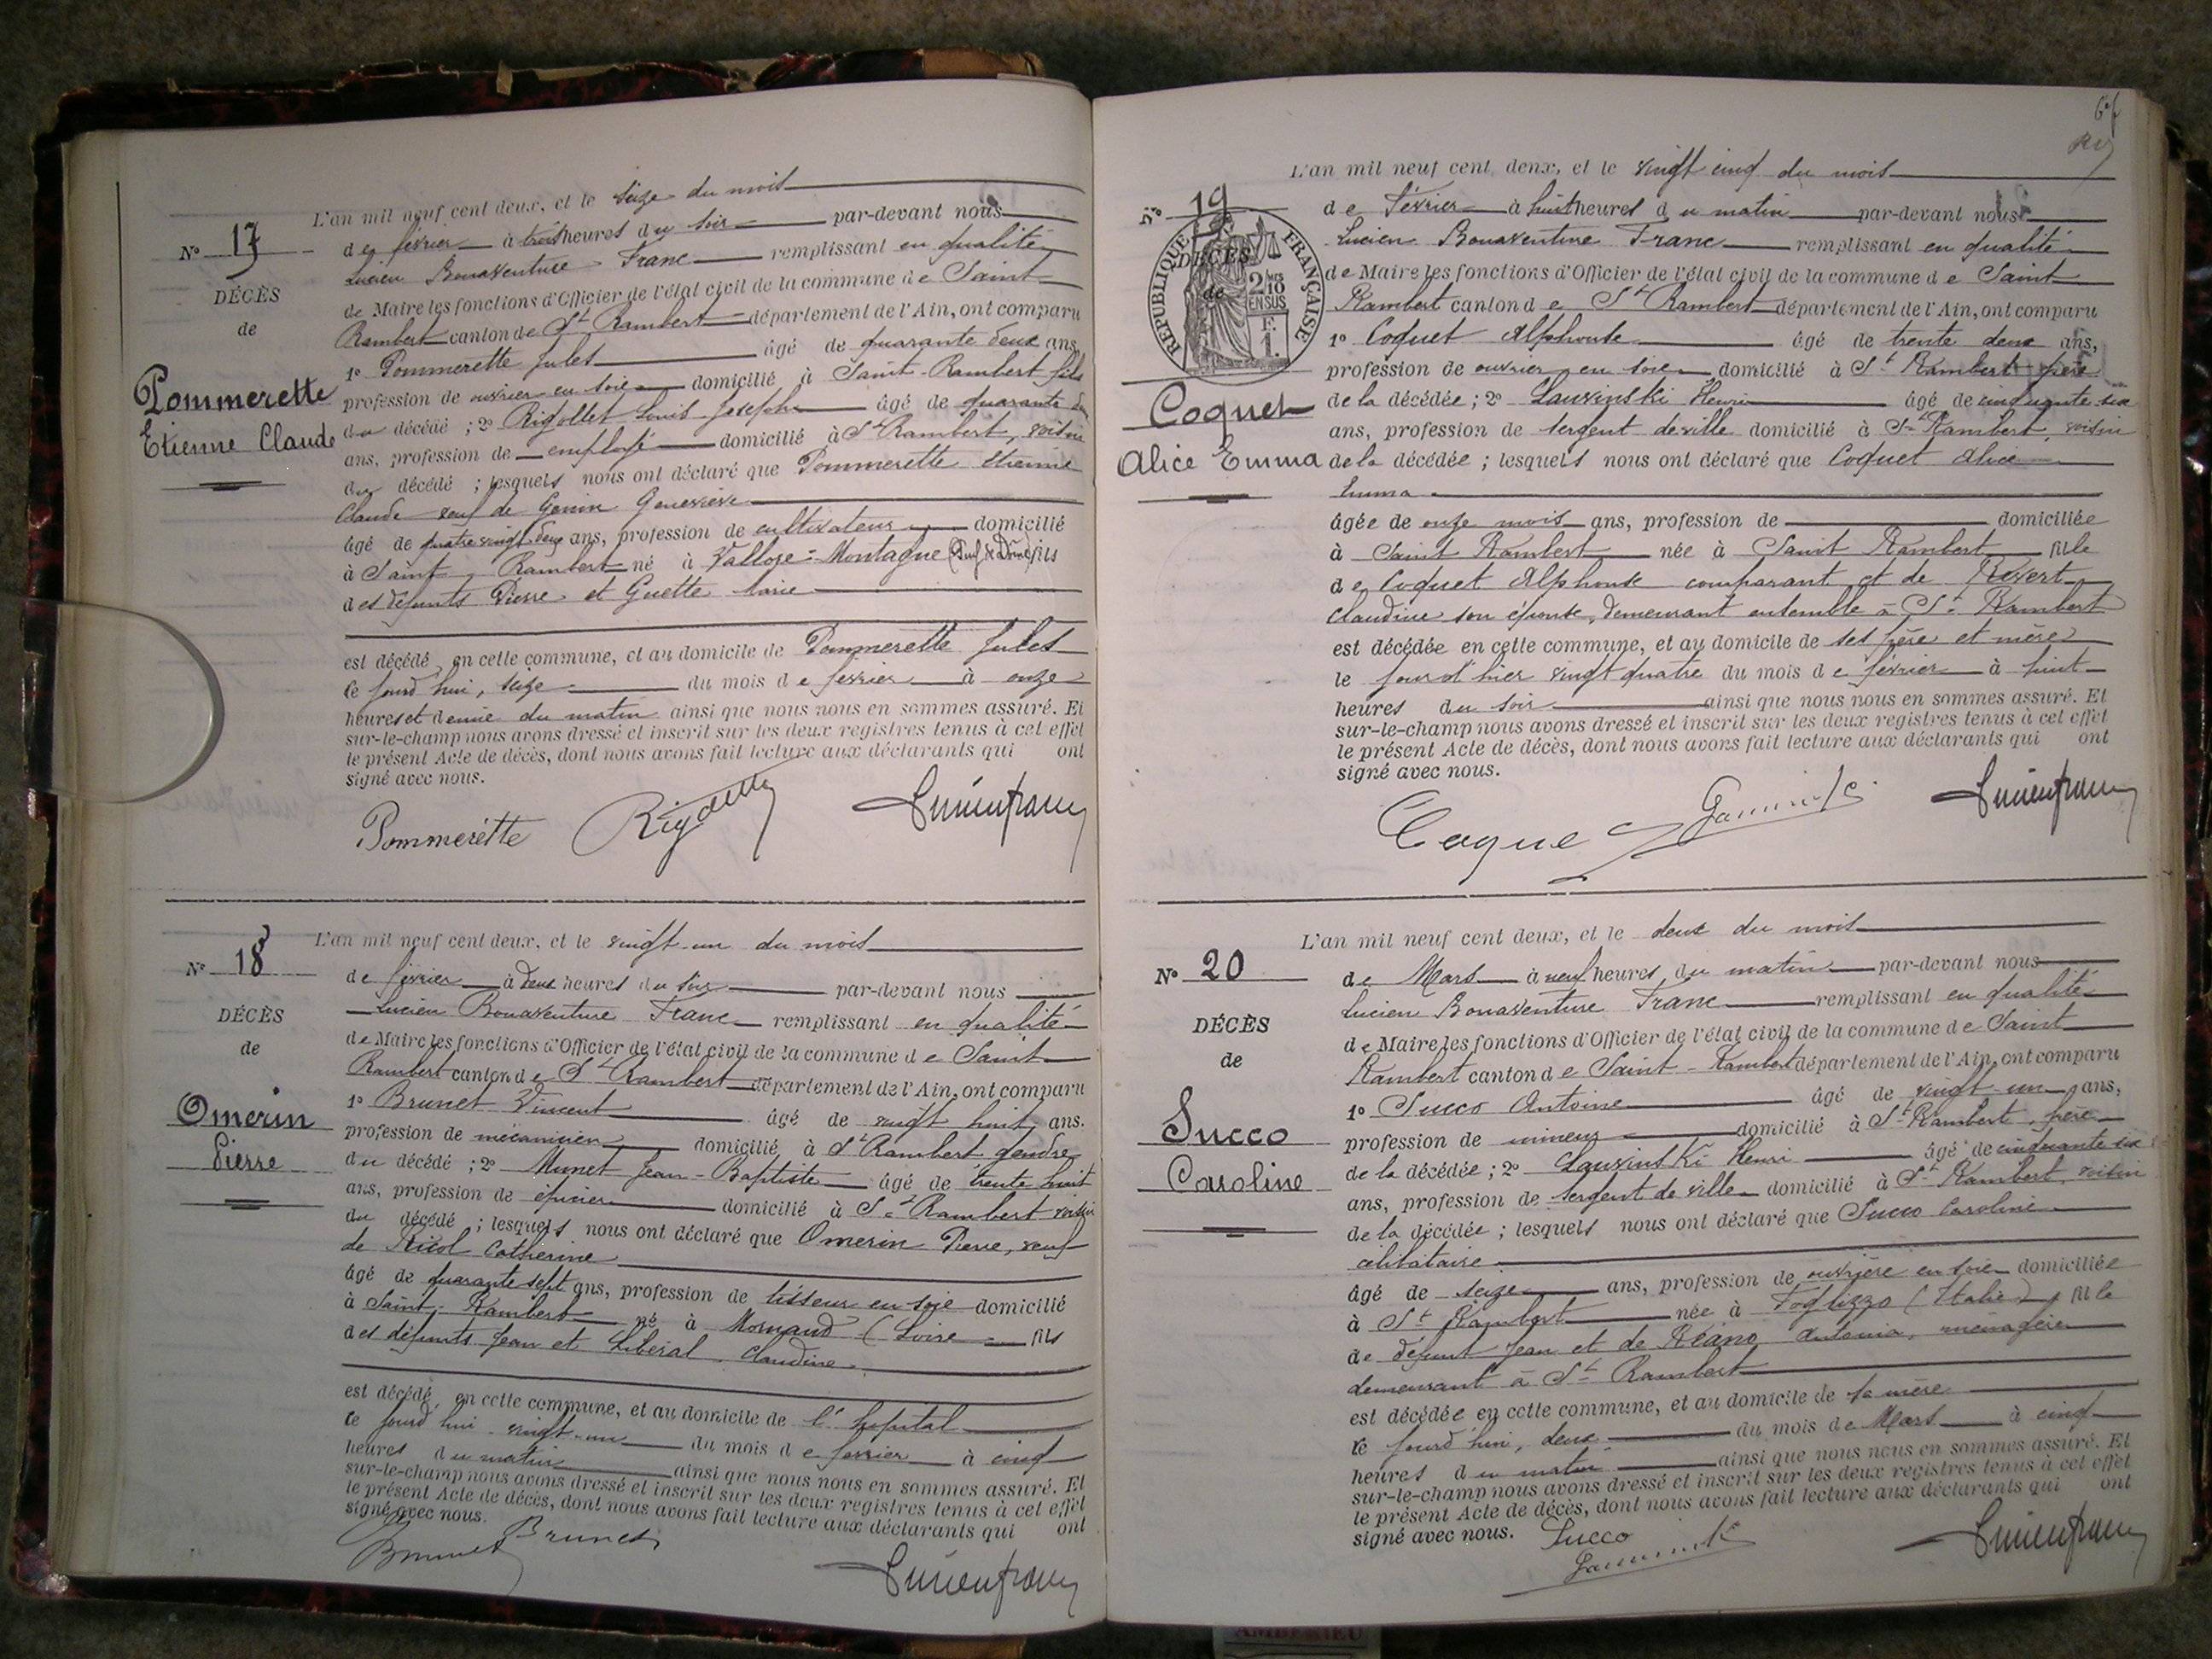 L'an mil neuf cent deux, et le seize du mois
N° 17
de février à trois heures du soir par-devant nous
Lucien Bonaventure Franc remplissant en qualité
DÉCÈS
de Maire les fonctions d'Officier de l'état civil de la commune de Saint
de
Rambert canton de St Rambert département de l'Ain, ont comparu
1° Pommerette Jules âgé de quarante deux ans,
Pommerette
profession de ouvrier en soie domicilié à Saint-Rambert fils
Etienne Claude
du décédé ; 2° Rigollet Louis Joseph âgé de quarante
ans, profession de employé domicilié à St Rambert, voisin
du décédé ; lesquels nous ont déclaré que Pommerette Etienne
Claude veuf de Genin Geneviève
âgé de quatre vingt deux ans, profession de cultivateur domicilié
à Saint Rambert né à Vallore-Montagne (Puy de Dôme) fils
des défunts Pierre et Guette Marie
est décédé en cette commune, et au domicile de Pommerette Jules
ce jourd'hui, seize du mois de février à onze
heures et demie du matin ainsi que nous nous en sommes assuré. Et
sur-le-champ nous avons dressé et inscrit sur les deux registres tenus à cet effet
le présent Acte de décès, dont nous avons fait lecture aux déclarants qui ont
signé avec nous.
Pommerette
L'an mil neuf cent deux, et le vingt-un du mois
N° 18
de février à deux heures du soir par-devant nous
Lucien Bonaventure Franc remplissant en qualité
DÉCÈS
de Maire les fonctions d'Officier de l'état civil de la commune de Saint
de
Rambert canton de St Rambert département de l'Ain, ont comparu
1° Brunet Vincent âgé de vingt huit ans.
Omerin
profession de mécanicien domicilié à St Rambert gendre
Pierre
du décédé ; 2° Munet Jean-Baptiste âgé de trente huit
ans, profession de épicier domicilié à St Rambert voisin
du décédé ; lesquels nous ont déclaré que Omerin Pierre, veuf
de Ricol Catherine
âgé de quarante sept ans, profession de tisseur en soie domicilié
à Saint-Rambert né à Mornand (Loire fils
des défunts Jean et Libéral Claudine.
est décédé en cette commune, et au domicile de l'hopital
ce jourd'hui vingt-un du mois de février à cinq
heures du matin ainsi que nous nous en sommes assuré. Et
sur-le-champ nous avons dressé et inscrit sur les deux registres tenus à cet effet
le présent Acte de décès, dont nous avons fait lecture aux déclarants qui ont
signé avec nous.
Brunet
L'an mil neuf cent deux, et le vingt cinq du mois
N° 19
de Février à huit heures du matin par-devant nous
Lucien Bonaventure Franc remplissant en qualité
RÉPUBLIQUE FRANÇAISE
DÉCÈS
2/10 EN SUS
de Maire les fonctions d'Officier de l'état civil de la commune de Saint
de
Rambert canton de St Rambert département de l'Ain, ont comparu
1° Coquet Alphonse âgé de trente deux ans,
profession de ouvrier en soie domicilié à St Rambert père
Coquet
de la décédée ; 2° Lauvinski Henri âgé de cinquante six
ans, profession de sergent de ville domicilié à St Rambert, voisin
Alice Emma
de la décédée ; lesquels nous ont déclaré que Coquet Alice
Emma
âgée de onze mois ans, profession de domiciliée
à Saint Rambert née à Saint Rambert fille
de Coquet Alphonse comparant et de Rivert
Claudine son épouse, demeurant ensemble à St Rambert
est décédée en cette commune, et au domicile de ses père et mère
le jour d'hier vingt quatre du mois de février à huit
heures du soir ainsi que nous nous en sommes assuré. Et
sur-le-champ nous avons dressé et inscrit sur les deux registres tenus à cet effet
le présent Acte de décès, dont nous avons fait lecture aux déclarants qui ont
signé avec nous.
Coquet
L'an mil neuf cent deux, et le deux du mois
N° 20
de Mars à neuf heures du matin par-devant nous
Lucien Bonaventure Franc remplissant en qualité
DÉCÈS
de Maire les fonctions d'Officier de l'état civil de la commune de Saint
de
Rambert canton de Saint-Rambert département de l'Ain, ont comparu
1° Succo Antoine âgé de vingt-un ans,
Succo
profession de mineur domicilié à St Rambert, frère
Caroline
de la décédée ; 2° Lauvinski Henri âgé de cinquante six
ans, profession de sergent de ville domicilié à St Rambert, voisin
de la décédée ; lesquels nous ont déclaré que Succo Caroline
célibataire
âgé de seize ans, profession de ouvrière en soie domiciliée
à St Rambert née à Foglizzo (Italie), fille
de défunt Jean et de Réano Antonia, ménagère
demeurant à St Rambert
est décédée en cette commune, et au domicile de sa mère
ce jourd'hui, deux du mois de Mars à cinq
heures du matin ainsi que nous nous en sommes assuré. Et
sur-le-champ nous avons dressé et inscrit sur les deux registres tenus à cet effet
le présent Acte de décès, dont nous avons fait lecture aux déclarants qui ont
signé avec nous. Succo